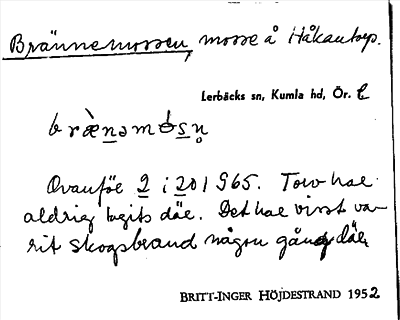 Brännemossen, mosse å Håkantorp.
Lerbäcks sn, Kumla hd, Ör. l
bræ̀nəmòsn̥
Ovanför 2 i 201 965. Torv har
aldrig tagits där. Det har visst va-
rit skogsbrand någon gång där.
BRITT-INGER HÖJDESTRAND 1952